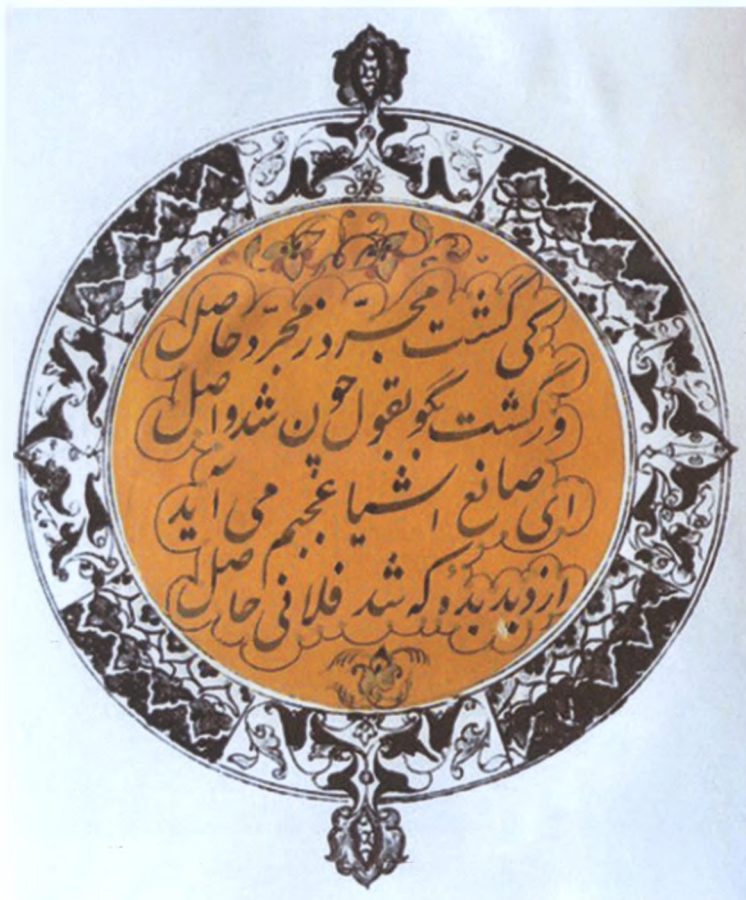 کی گشت مجرّد ز مجرّد حاصل
ور گشت بگو بقول چون شد واصل
ای صانع اشیا عجبم می آید
از دبدبهٔ که شد فلانی حاصل